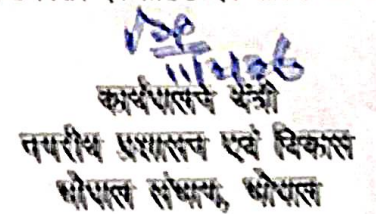 कार्यपालन यंत्री
नगरीय प्रशासन एवं विकास
भोपाल संभाग, भोपाल